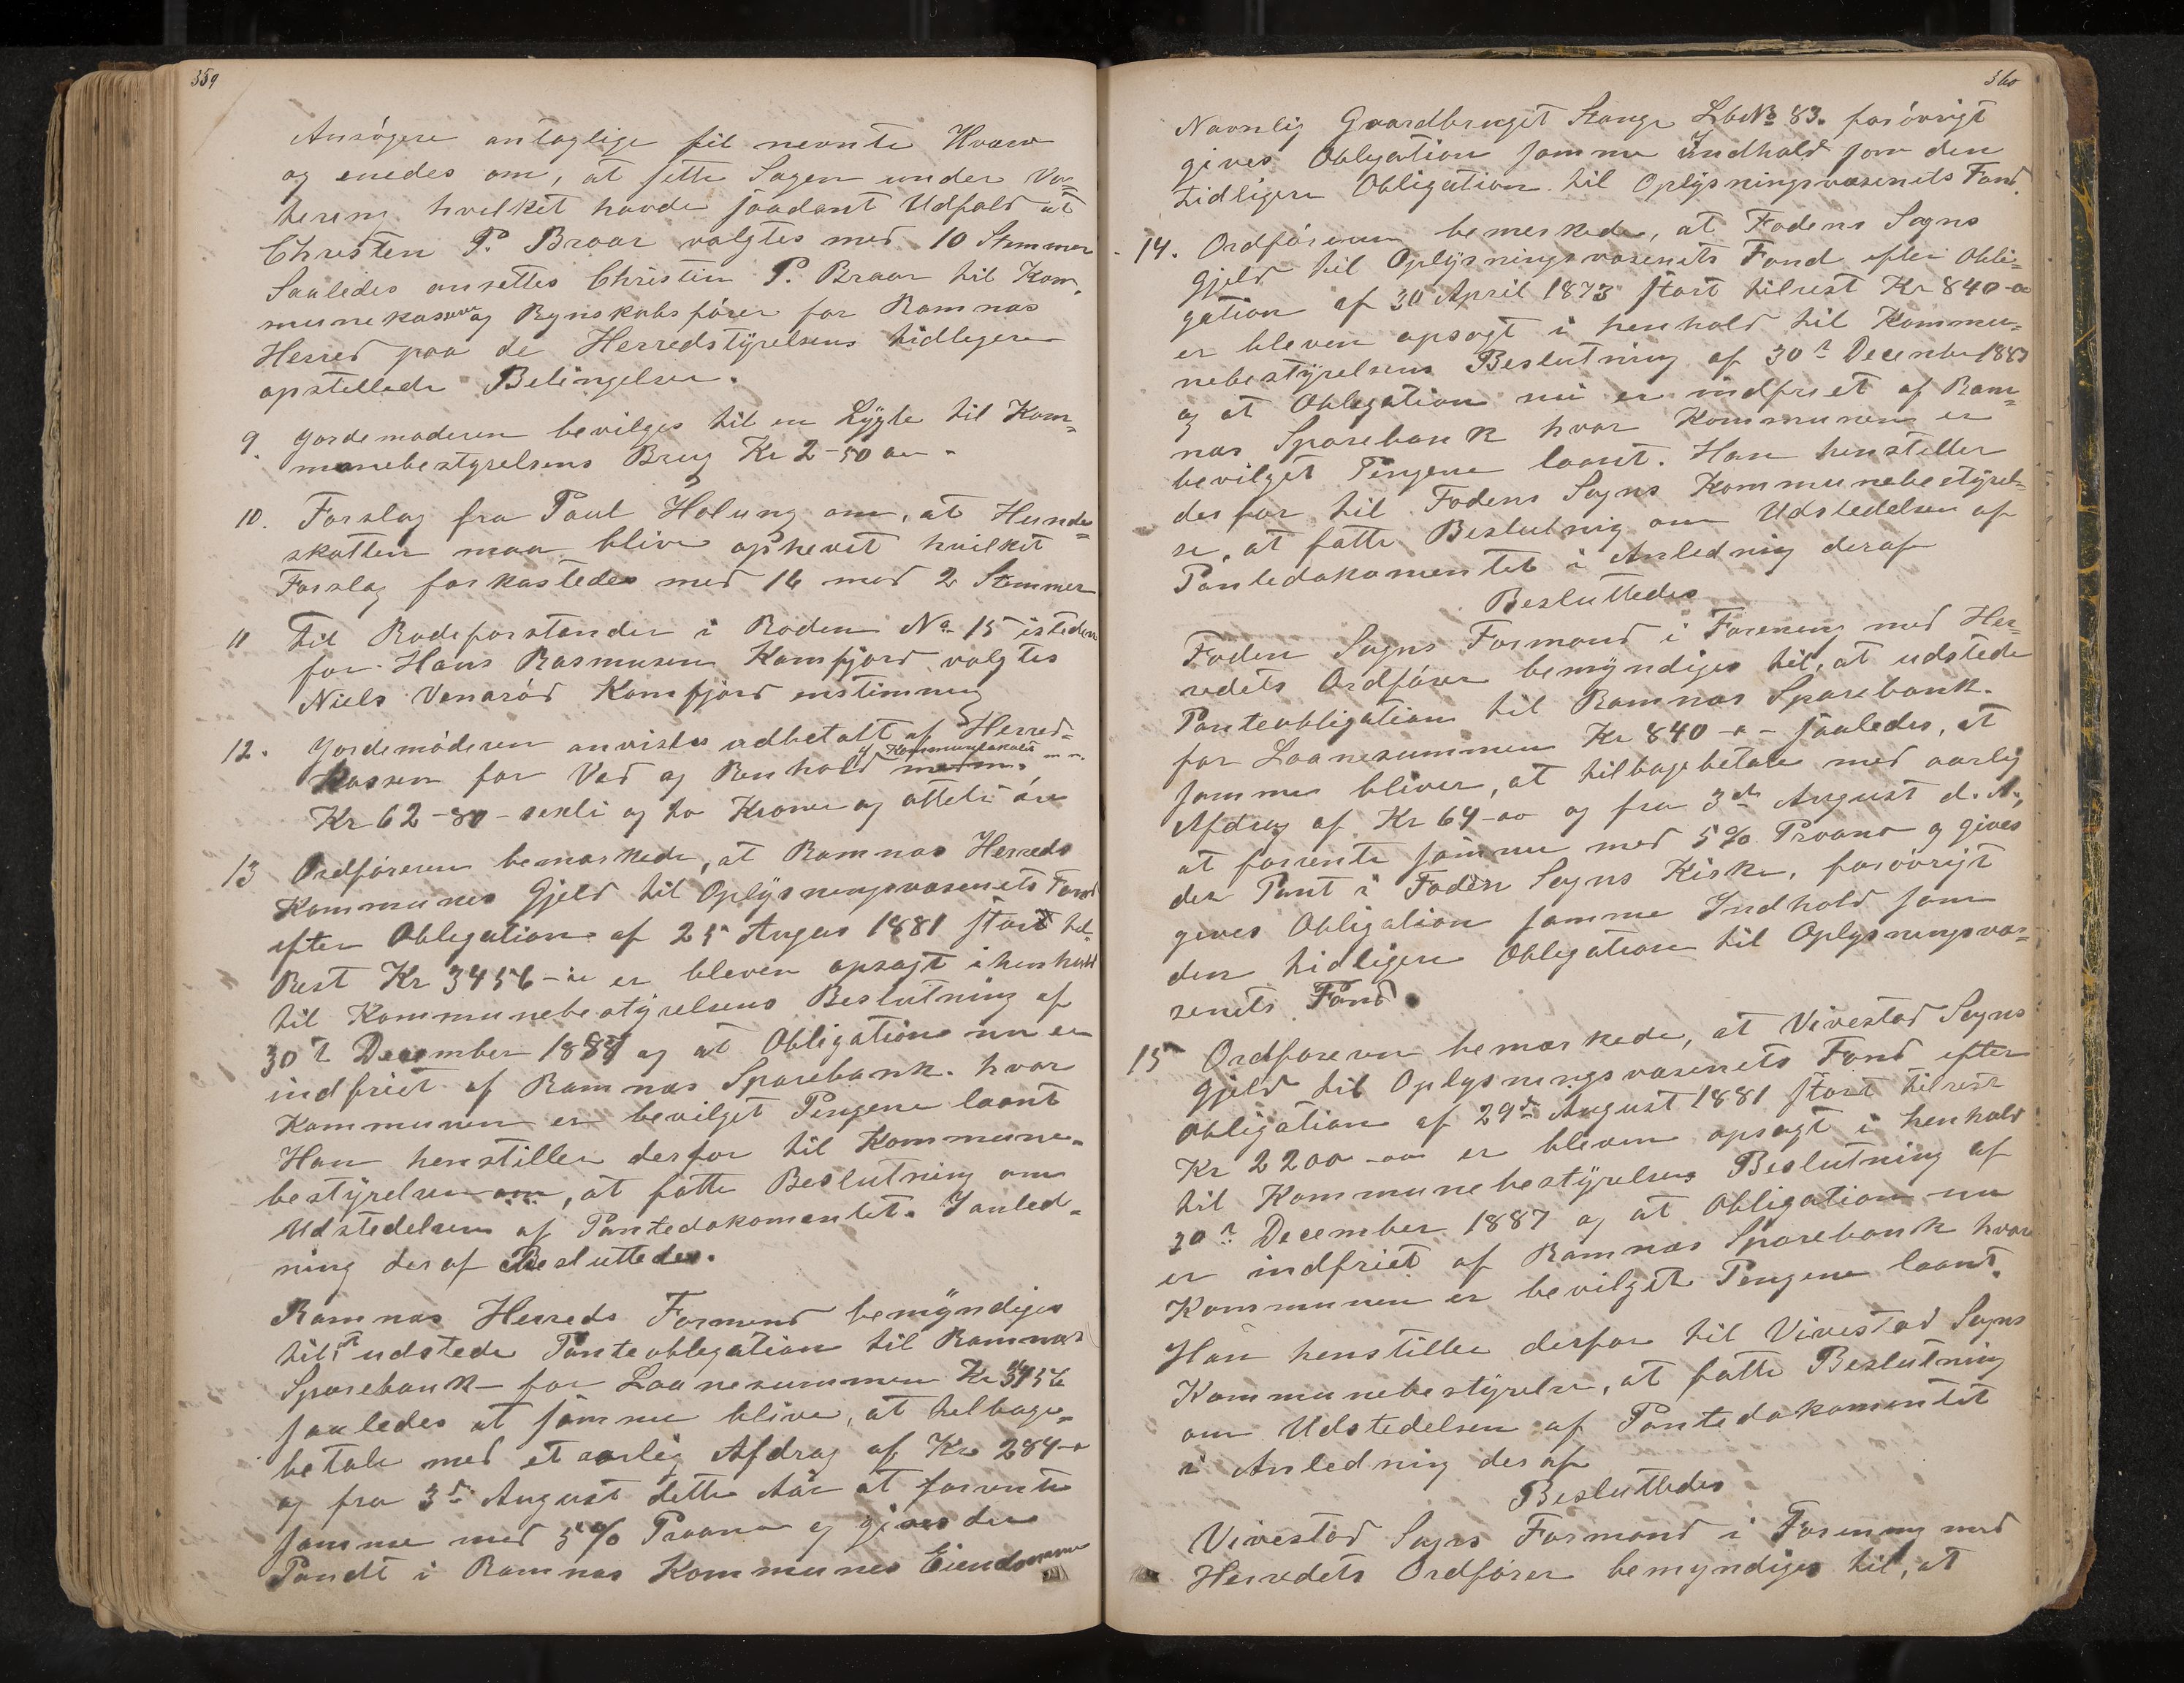 359
Ansøgere antaglige til nevnte Hverv
og enedes om, at sette Sagen under Vo-
tering hvilket havde saadant Udfald at
Christen P. Braar valgtes med 10 Stemmer
Saaledes ansettes Christen P. Braar til Kom-
munekasserer og Regnskabsfører for Ramnæs
Herred paa de Herredstyrelsens tidligere
opstillede Betingelser.
9. Gordemoderen bevilges til en Lygte til Kom=
munebestyrelsens Brug Kr 2-50 øre.
10. Forslag fra Paul Holung om, at Hunde=
skatten maa blive ophevet hvilket
Forslag forkastedes med 16 mod 2 Stemmer
11 Til Rodeforstander i Roden No 15 isteden
for Hans Rasmusen Kamfjord valgtes
Niels Venarød Kamfjord enstimmig
12. Jordemøderen anvistes udbetalt af Herred=
kassen for Ved og Renhold af Kommunelokalet
Kr 62-80 - sexti og to Kroner og otteti øre
13 Ordføreren bemærkede, at Ramnæs Herreds
Kommunes Gjeld til Oplysningsvæsenets Fond
efter Obligation af 25 Augus 1881 stort til
Rest Kr 3456 - er bleven opsagt i henhold
til Kommunebestyrelsens Beslutning af
30te December 1887 og at Obligation nu er
indfriet af Ramnæs Sparebank. hvor
Kommunen er bevilget Pengene laant
Han henstiller derfor til Kommune-
bestyrelsen om, at fatte Beslutning om
Udstedelsen af Pantedokomentet. Ianled-
ning deraf Besluttedes.
Ramnæs Herreds Formend bemyndiges
til at udstede Panteobligation til Ramnæs
Sparebank - for Laanesummen Kr 3456
saaledes at samme blive, at tilbage=
betale med et aarlig Afdrag af Kr 284-
og fra 3de August dette Aar at forrente
samme med 5% Proano og gives der
Pandt i Ramnæs Kommunes Eiendomme
360
Navnlig Gaardbruget Stange LbNo 83. forøvrigt
gives Obligation samme Indhold som den
tidligere Obligation til Oplysningsvæsenets Fond.
14. Ordføreren bemerkede, at Fodens Sogns
Gjeld til Oplysningsvæsenets Fond efter Obli=
gation af 30 April 1873 stort tilrest Kr 840-00
er bleven opsagt i henhold til Kommu=
nebestyrelsens Beslutning af 30te December 1887
og at Obligation nu er indfriet af Ram=
næs Sparebank hvor Kommunen er
bevilget Pengene laant. Han henstiller
derfor til Fodens Sogns Kommunebestyrel=
se, at fatte Beslutnig om Udstedelsen af
Pantedokomentet i Anlednig deraf
Besluttedes
Foden Sogns Formand i Forening med Her=
redets Ordfører bemyndiges til, at udstede
Panteobligation til Ramnæs Sparebank.
for Laanesummen Kr 840 - - saaledes, at
samme bliver, at tilbagebetale med aarlig
Afdrag af Kr 64-00 og fra 3de August d. A.,
at forrente samme med 5% Proano og gives
der Pant i Foden Sogns Kirke, forøvrigt
gives Obligation samme Indhold som
den tidligere Obligation til Oplysningsvæ=
senets Fond.
15 Ordføreren bemærkede, at Vivestad Sogns
Gjeld til Oplysningsvæsenets Fond efter
Obligation af 29de August 1881 stort tilrest
Kr 2200-00 er bleven opsagt i henhold
til Kommunebestyrelsens Beslutning af
30te December 1887 og at Obligation nu
er indfriet af Ramnæs Sparebank hvor
Kommunen er bevilget Pengene laant.
Han henstiller derfor til Vivestad Sogns
Kommunebestyrelse, at fatte Beslutning
om Udstedelsen af Pantedokomentet
i Anlednig deraf
Besluttedes
Vivestad Sogns Formand i Forening med
Herredets Ordfører bemyndiges til, at